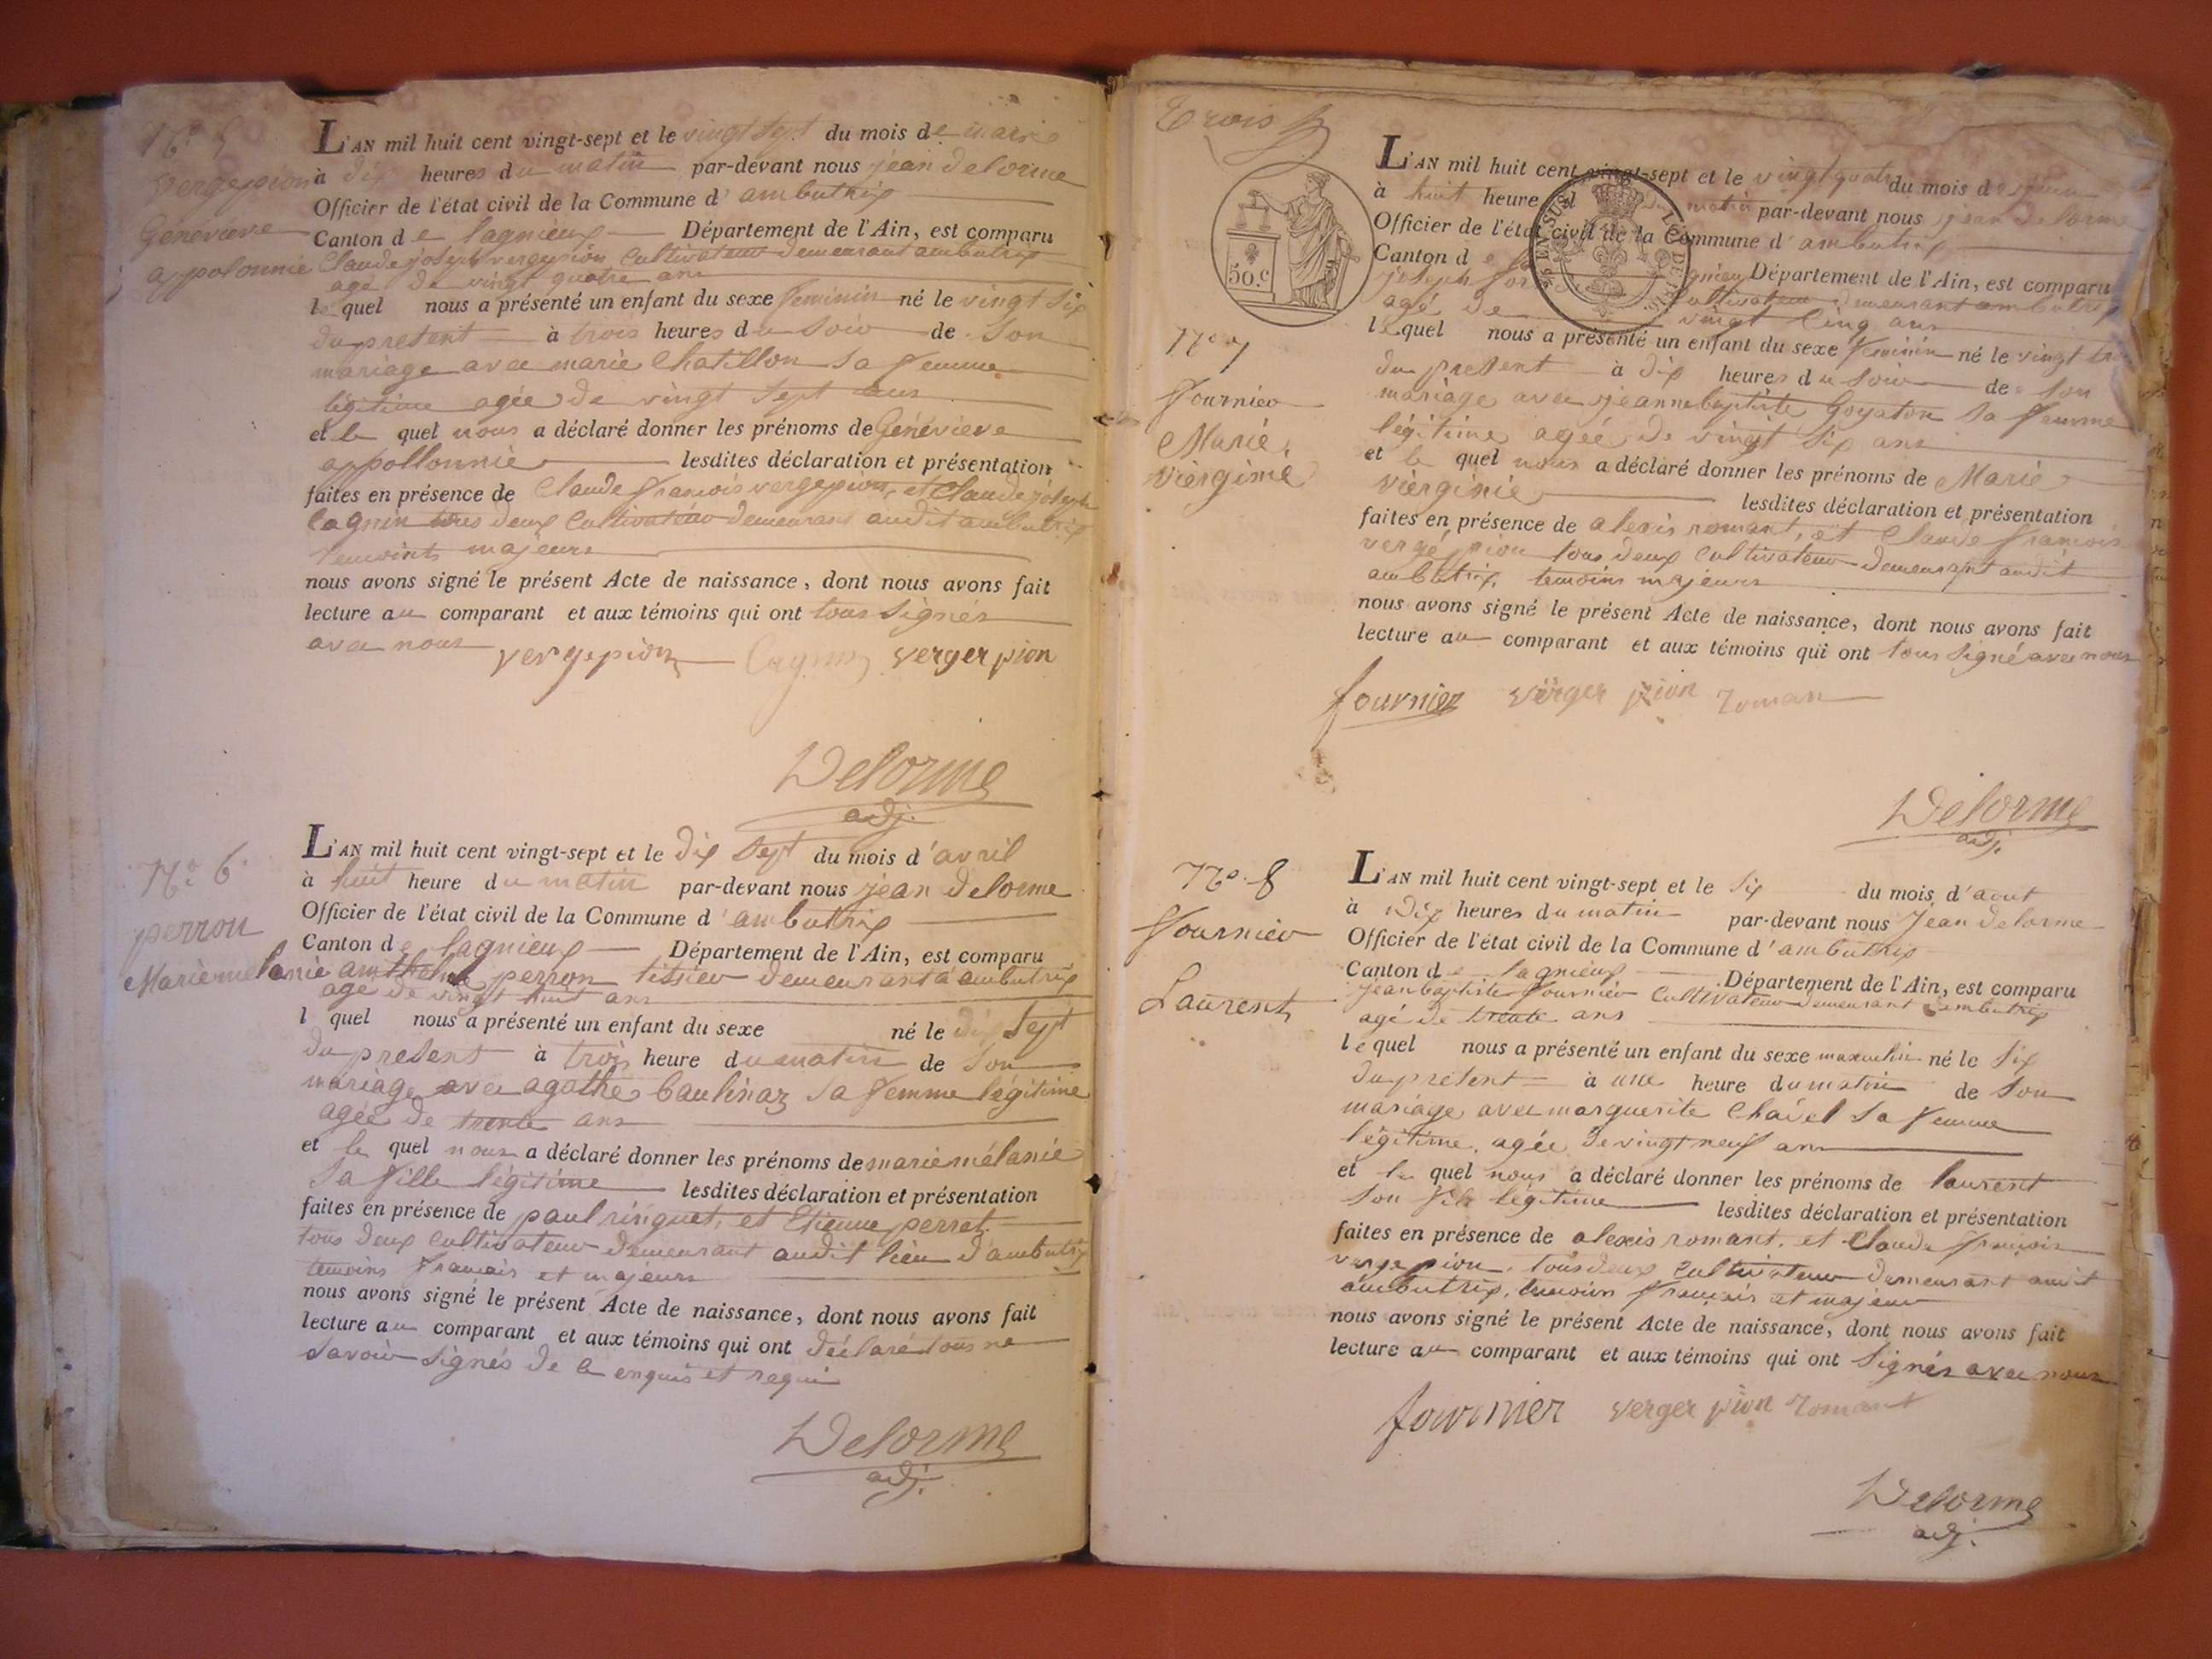 N.º 5
vergepion
Genevieve
appolonnie
L'AN mil huit cent vingt-sept et le vingt sept du mois de mars
à dix heures du matin par-devant nous jean delorme
Officier de l'état civil de la Commune d'ambutrix
Canton de lagnieux Département de l'Ain, est comparu
Claude joseph vergepion Cultivateur demeurant ambutrix
agé de vingt quatre ans
lequel nous a présenté un enfant du sexe feminin né le vingt six
du present à trois heures du soir de son
mariage avec marie Chatillon sa femme
légitime agée de vingt sept ans
et le quel nous a déclaré donner les prénoms de Généviève
appollonnie lesdites déclaration et présentation
faites en présence de Claude françois vergepion, et Claude joseph
Cagnin tous deux Cultivateur demeurant audit ambutrix
temoints majeurs
nous avons signé le présent Acte de naissance, dont nous avons fait
lecture au comparant et aux témoins qui ont tous signés
avec nous
vergepion Cagnin verger pion
Delorme
adj.
N.º 6
perron
Marie melanie
L'AN mil huit cent vingt-sept et le dix sept du mois d'avril
à huit heure du matin par-devant nous jean delorme
Officier de l'état civil de la Commune d'ambutrix
Canton de lagnieux Département de l'Ain, est comparu
anthelme perron tissieur demeurant à ambutrix
agé de vingt huit ans
l quel nous a présenté un enfant du sexe né le dix sept
du present à trois heure du matin de son
mariage avec agathe baulinaz sa femme légitime
agée de trente ans
et le quel nous a déclaré donner les prénoms de marie mélanie
sa fille légitime lesdites déclaration et présentation
faites en présence de paul ringuet, et Etienne perret
tous deux Cultivateur demeurant audit lieu d'ambutrix
temoins français et majeurs
nous avons signé le présent Acte de naissance, dont nous avons fait
lecture au comparant et aux témoins qui ont déclaré tous ne
savoir signés de ce enquis et requis
Delorme
adj.
trois
50.c
EN SUS
N.º 7
fournier
Marie
viergine
L'AN mil huit cent vingt-sept et le vingt quatre du mois de juin
à huit heure du matin par-devant nous jean delorme
Officier de l'état civil de la Commune d'ambutrix
Canton de Département de l'Ain, est comparu
joseph Cultivateur demeurant ambutrix
agé de vingt Cinq ans
lequel nous a présenté un enfant du sexe feminin né le vingt
du present à dix heures du soir de son
mariage avec jeanne baptiste Goyaton sa femme
légitime agée de vingt six ans
et le quel nous a déclaré donner les prénoms de Marie
viergine lesdites déclaration et présentation
faites en présence de alexis romant, et Claude françois
vergepion tous deux Cultivateur demeurant audit
ambutrix, temoins majeurs
nous avons signé le présent Acte de naissance, dont nous avons fait
lecture au comparant et aux témoins qui ont tous signé avec nous
fournier verger pion roman
Delorme
adj.
N.º 8
fournier
Laurent
L'AN mil huit cent vingt-sept et le six du mois d'aout
à Dix heures du matin par-devant nous Jean delorme
Officier de l'état civil de la Commune d'ambutrix
Canton de lagnieux Département de l'Ain, est comparu
jean baptiste fournier Cultivateur demeurant ambutrix
agé de trente ans
lequel nous a présenté un enfant du sexe masculin né le six
du présent à une heure du matin de son
mariage avec marguerite Chavel sa femme
légitime, agée de vingt neuf ans
et le quel nous a déclaré donner les prénoms de laurent
son fils légitime lesdites déclaration et présentation
faites en présence de alexis romant, et Claude françois
vergepion, tous deux Cultivateur demeurant audit
ambutrix, temoin français et majeur
nous avons signé le présent Acte de naissance, dont nous avons fait
lecture au comparant et aux témoins qui ont signés avec nous
fournier verger pion romant
Delorme
adj.